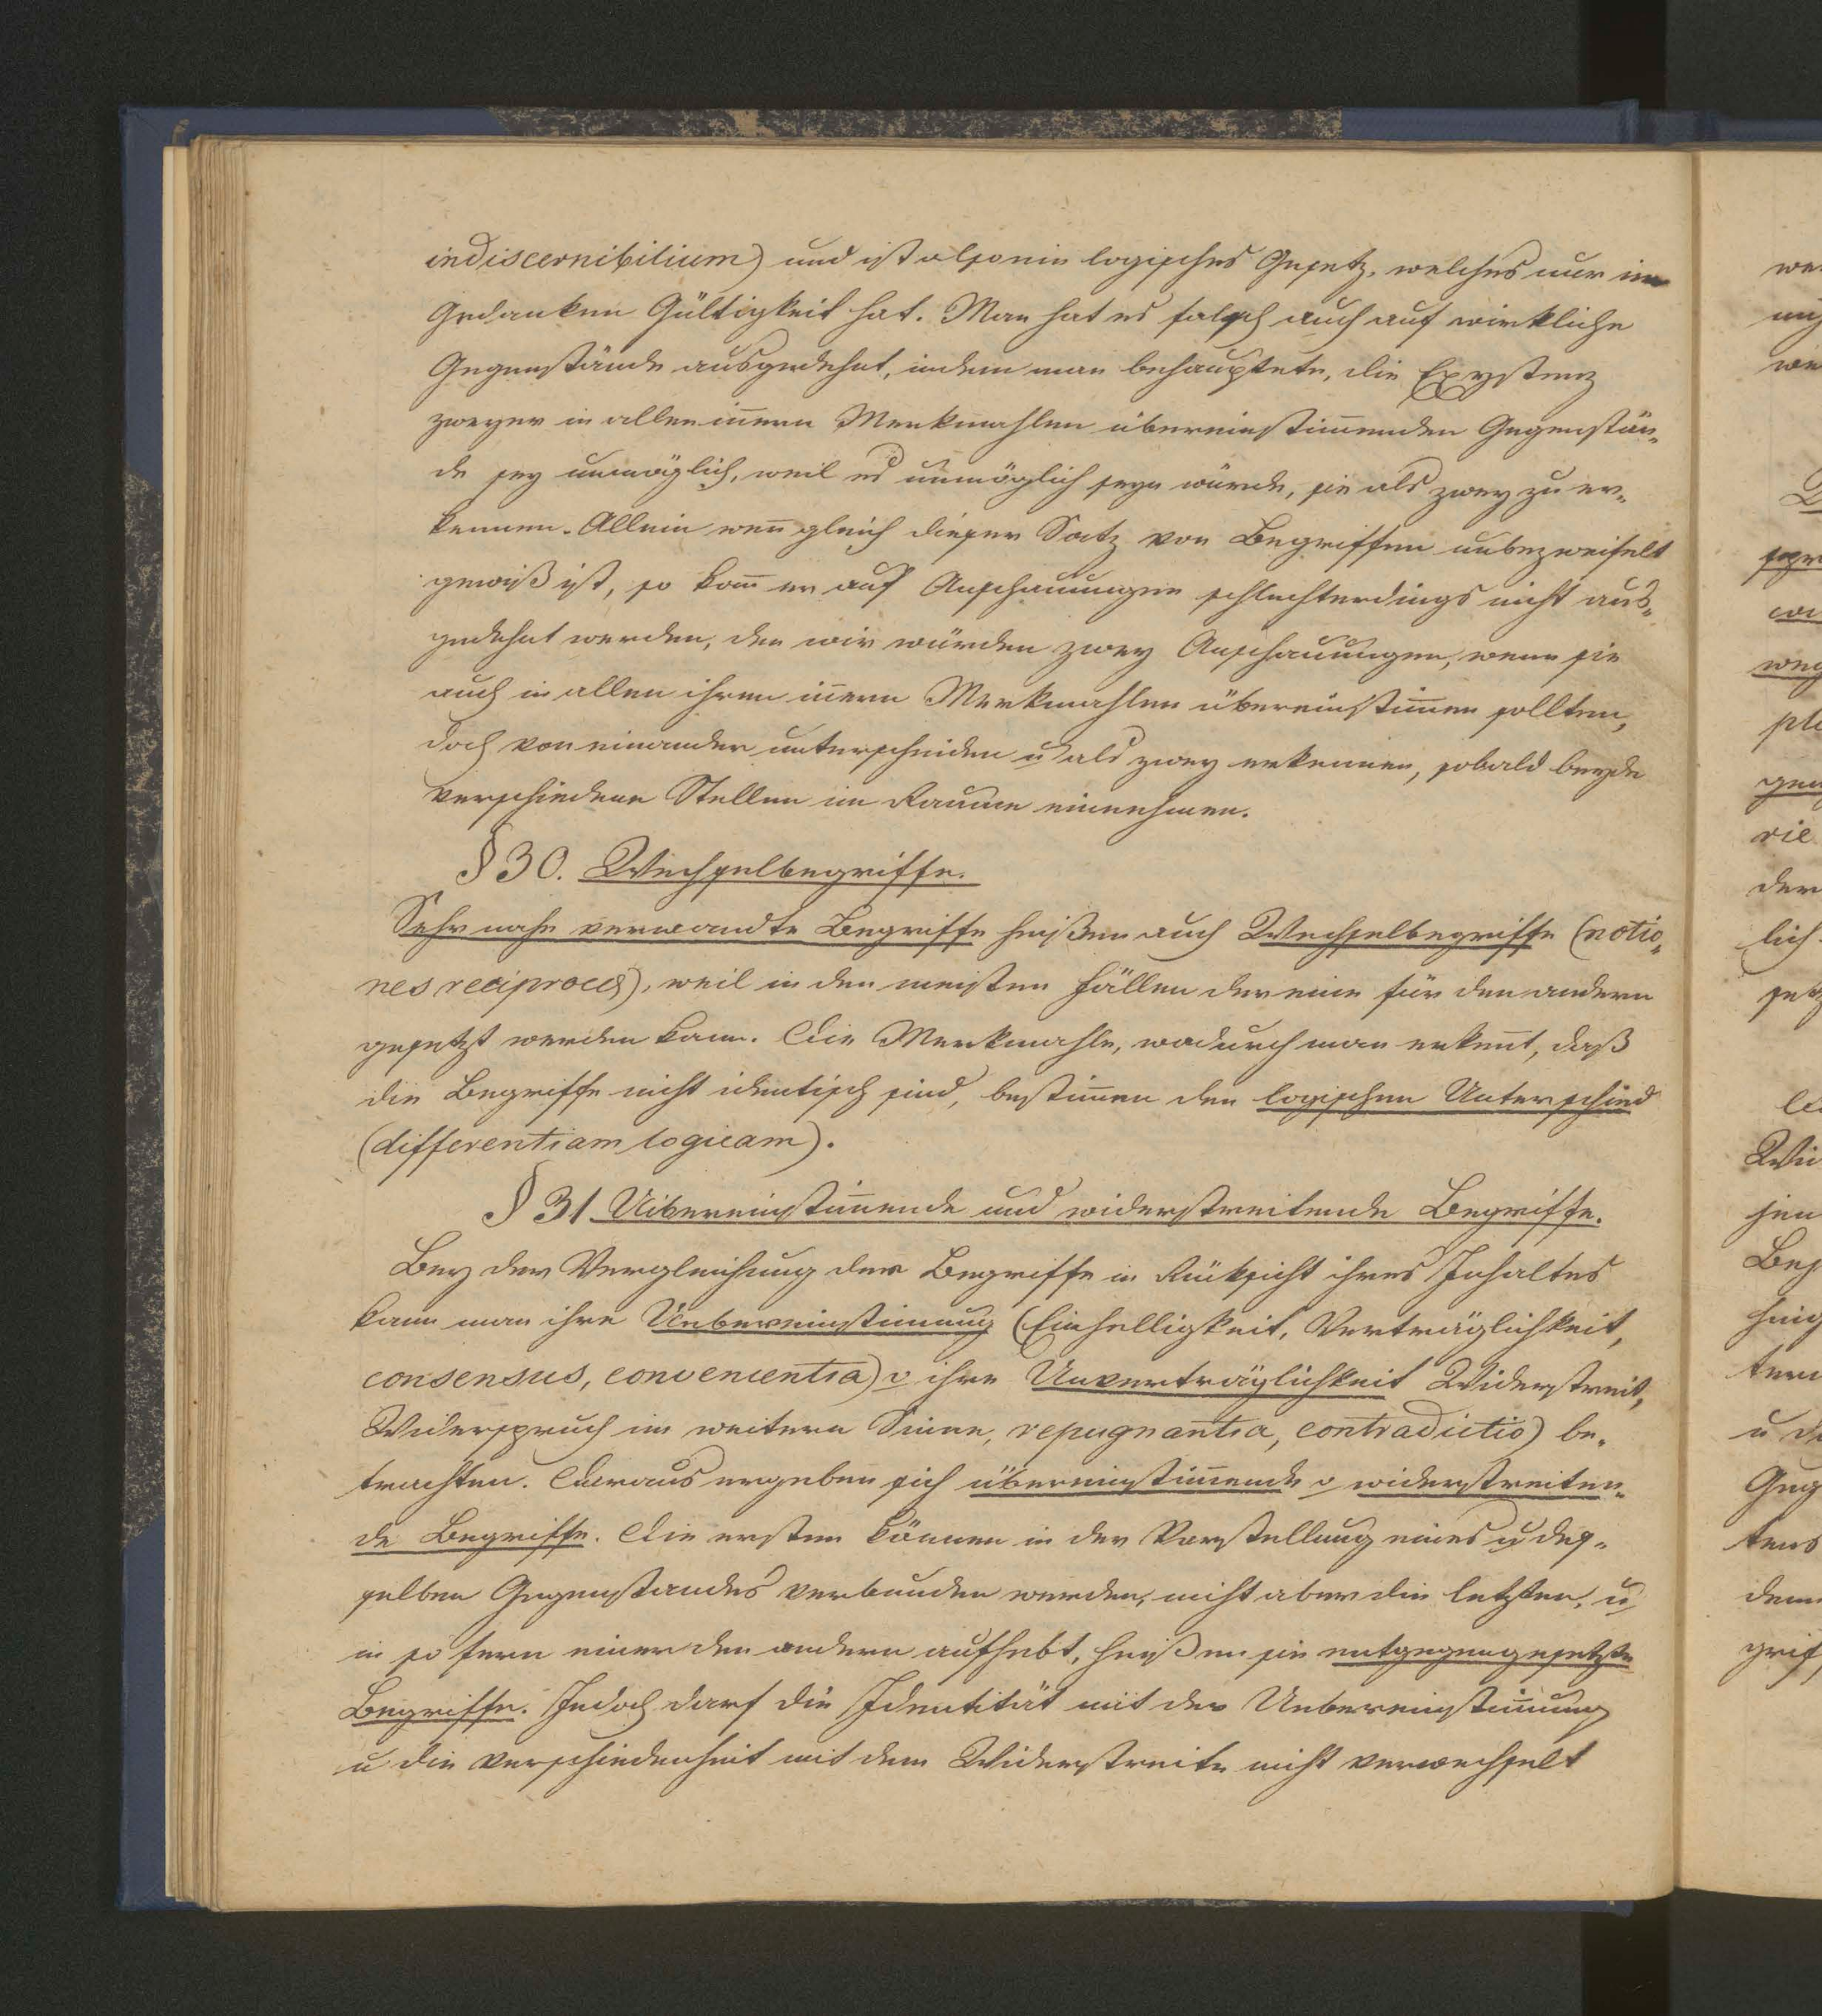 indiscernibilium) und ist also ein logisches Gesetz, welches nur im
Gedanken Gültigkeit hat. Man hat es falsch auch auf wirkliche
Gegenstände ausgedehnt, indem man behauptete, die Existenz
zweyer in allen iñern Merkmahlen übereinstim̅enden Gegenstän„
de sey unmöglich, weil es unmöglich seyn würde, sie als zwey zu er„
kennen. Allein weñ gleich dieser Satz von Begriffen unbezweifelt
gewiß ist, so kañ er auf Anschauungen schlechterdings nicht aus„
gedehnt werden, den wir würden zwey Anschauungen, wenn sie
auch in allen ihren iñern Merkmahlen übereinstim̅en sollten,
doch von einander unterscheiden u als zwey erkennen, sobald beyde
verschiedene Stellen im Raume einnehmen.
§ 30. Wechselbegriffe.
Sehr nahe verwandte Begriffe heißen auch Wechselbegriffe (notio„
nes reciprocas), weil in den meisten Fällen der eine für den andern
gesetzt werden kann. Die Merkmahle, wodurch man erkeñt, daß
die Begriffe nicht identisch sind, bestim̅en den logischen Unterschied
(differentiam logicam).
§ 31. Uibereinstim̅ende und widerstreitende Begriffe.
Bey der Vergleichung der Begriffe in Rüksicht ihres Inhaltes
kann man ihre Uebereinstim̅ung (Einhelligkeit, Verträglichkeit,
consensus, convenientia) o ihre Unverträglichkeit Widerstreit,
Widerspruch im weitern Sinne, repugnantia, contradictio) be„
trachten. Daraus ergeben sich übereinstim̅ende o widerstreiten„
de Begriffe. Die ersten können in der Vorstellung eines u des„
selben Gegenstandes verbunden werden, nicht aber die letzten, u
in so fern einer den andern aufhebt, heißen sie entgegengesetzte
Begriffe. Jedoch darf die Identität mit der Uebereinstim̅ung
u die Verschiedenheit mit dem Widerstreite nicht verwechselt